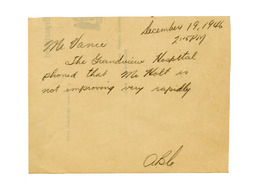 December 19, 1946
2:15 PM
Mr Vance
The Grandview Hospital
phoned that Mr Holt is
not improving very rapidly